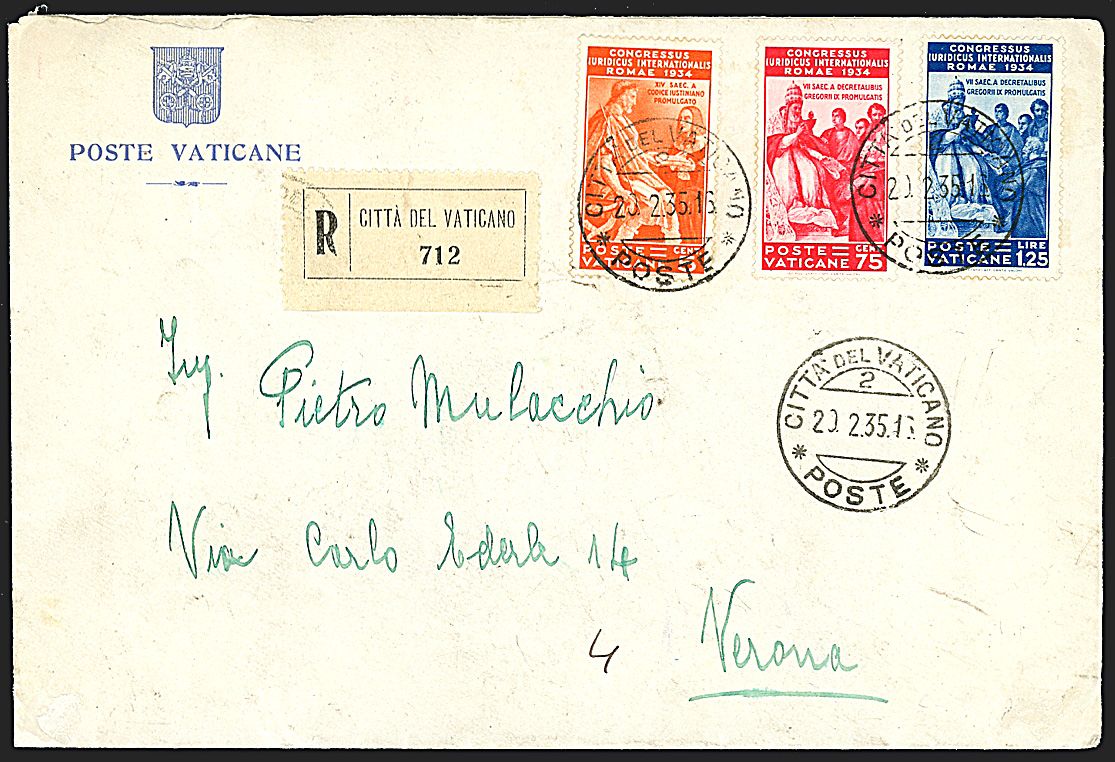 POSTE VATICANE
R
CITTÀ DEL VATICANO
712
CONGRESSUS
IURIDICUS INTERNATIONALIS
ROMAE 1934
XIV SAEC. A
CODICE IUSTINIANO
PROMULGATO
POSTE = CENT
CONGRESSUS
IURIDICUS INTERNATIONALIS
ROMAE 1934
VII SAEC. A DECRETALIBUS
GREGORII IX PROMULGATIS
POSTE = CENT
VATICANE 75
CONGRESSUS
IURIDICUS INTERNATIONALIS
ROMAE 1934
VII SAEC. A DECRETALIBUS
GREGORII IX PROMULGATIS
POSTE = LIRE
VATICANE 1.25
CITTÀ DEL VATICANO
20 2.35.16
* POSTE *
CITTÀ DEL VATICANO
20 2.35.16
* POSTE *
CITTÀ DEL VATICANO
2
20 2.35.16
* POSTE *
Ing. Pietro Mulacchio
Via Carlo Ederle 14
4
Verona